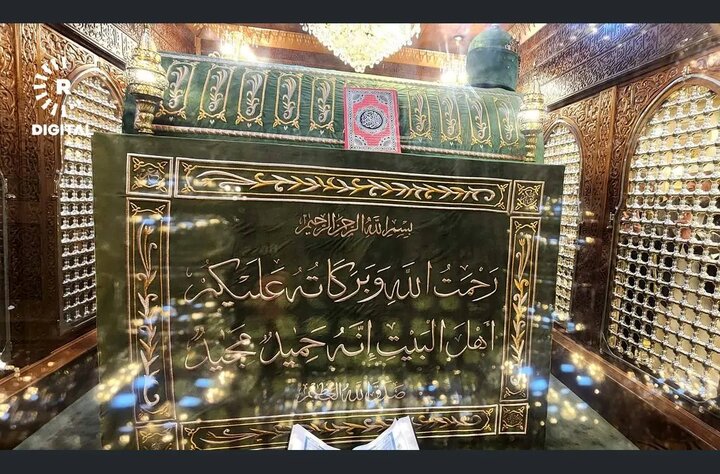 R
DIGITAL
بسم الله الرحمن الرحيم
رَحْمَتُ اللَّهِ وَبَرَكَاتُهُ عَلَيْكُمْ
أَهْلَ الْبَيْتِ إِنَّهُ حَمِيدٌ مَجِيدٌ
صدق الله العظيم